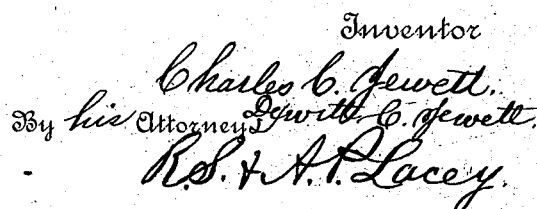 Inventor
Charles C. Jewett.
Dewitt C. Jewett.
By his Attorneys
R.S. & A.P. Lacey.